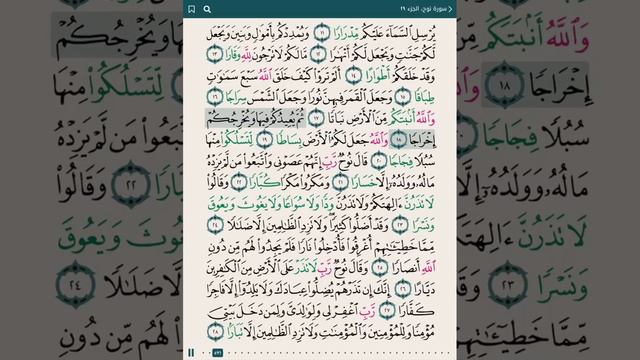 سورة نوح، الجزء ٢٩
يُرْسِلِ السَّمَاءَ عَلَيْكُم مِّدْرَارًا ١١ وَيُمْدِدْكُم بِأَمْوَالٍ وَبَنِينَ وَيَجْعَل
لَّكُمْ جَنَّاتٍ وَيَجْعَل لَّكُمْ أَنْهَارًا ١٢ مَّا لَكُمْ لَا تَرْجُونَ لِلَّهِ وَقَارًا ١٣
وَقَدْ خَلَقَكُمْ أَطْوَارًا ١٤ أَلَمْ تَرَوْا كَيْفَ خَلَقَ اللَّهُ سَبْعَ سَمَاوَاتٍ
طِبَاقًا ١٥ وَجَعَلَ الْقَمَرَ فِيهِنَّ نُورًا وَجَعَلَ الشَّمْسَ سِرَاجًا ١٦
وَاللَّهُ أَنبَتَكُم مِّنَ الْأَرْضِ نَبَاتًا ١٧ ثُمَّ يُعِيدُكُمْ فِيهَا وَيُخْرِجُكُمْ
إِخْرَاجًا ١٨ وَاللَّهُ جَعَلَ لَكُمُ الْأَرْضَ بِسَاطًا ١٩ لِّتَسْلُكُوا مِنْهَا
سُبُلًا فِجَاجًا ٢٠ قَالَ نُوحٌ رَّبِّ إِنَّهُمْ عَصَوْنِي وَاتَّبَعُوا مَن لَّمْ يَزِدْهُ
مَالُهُ وَوَلَدُهُ إِلَّا خَسَارًا ٢١ وَمَكَرُوا مَكْرًا كُبَّارًا ٢٢ وَقَالُوا
لَا تَذَرُنَّ آلِهَتَكُمْ وَلَا تَذَرُنَّ وَدًّا وَلَا سُوَاعًا وَلَا يَغُوثَ وَيَعُوقَ
وَنَسْرًا ٢٣ وَقَدْ أَضَلُّوا كَثِيرًا وَلَا تَزِدِ الظَّالِمِينَ إِلَّا ضَلَالًا ٢٤
مِّمَّا خَطِيئَاتِهِمْ أُغْرِقُوا فَأُدْخِلُوا نَارًا فَلَمْ يَجِدُوا لَهُم مِّن دُونِ
اللَّهِ أَنصَارًا ٢٥ وَقَالَ نُوحٌ رَّبِّ لَا تَذَرْ عَلَى الْأَرْضِ مِنَ الْكَافِرِينَ
دَيَّارًا ٢٦ إِنَّكَ إِن تَذَرْهُمْ يُضِلُّوا عِبَادَكَ وَلَا يَلِدُوا إِلَّا فَاجِرًا
كَفَّارًا ٢٧ رَّبِّ اغْفِرْ لِي وَلِوَالِدَيَّ وَلِمَن دَخَلَ بَيْتِيَ
مُؤْمِنًا وَلِلْمُؤْمِنِينَ وَالْمُؤْمِنَاتِ وَلَا تَزِدِ الظَّالِمِينَ إِلَّا تَبَارًا ٢٨
٥٧١